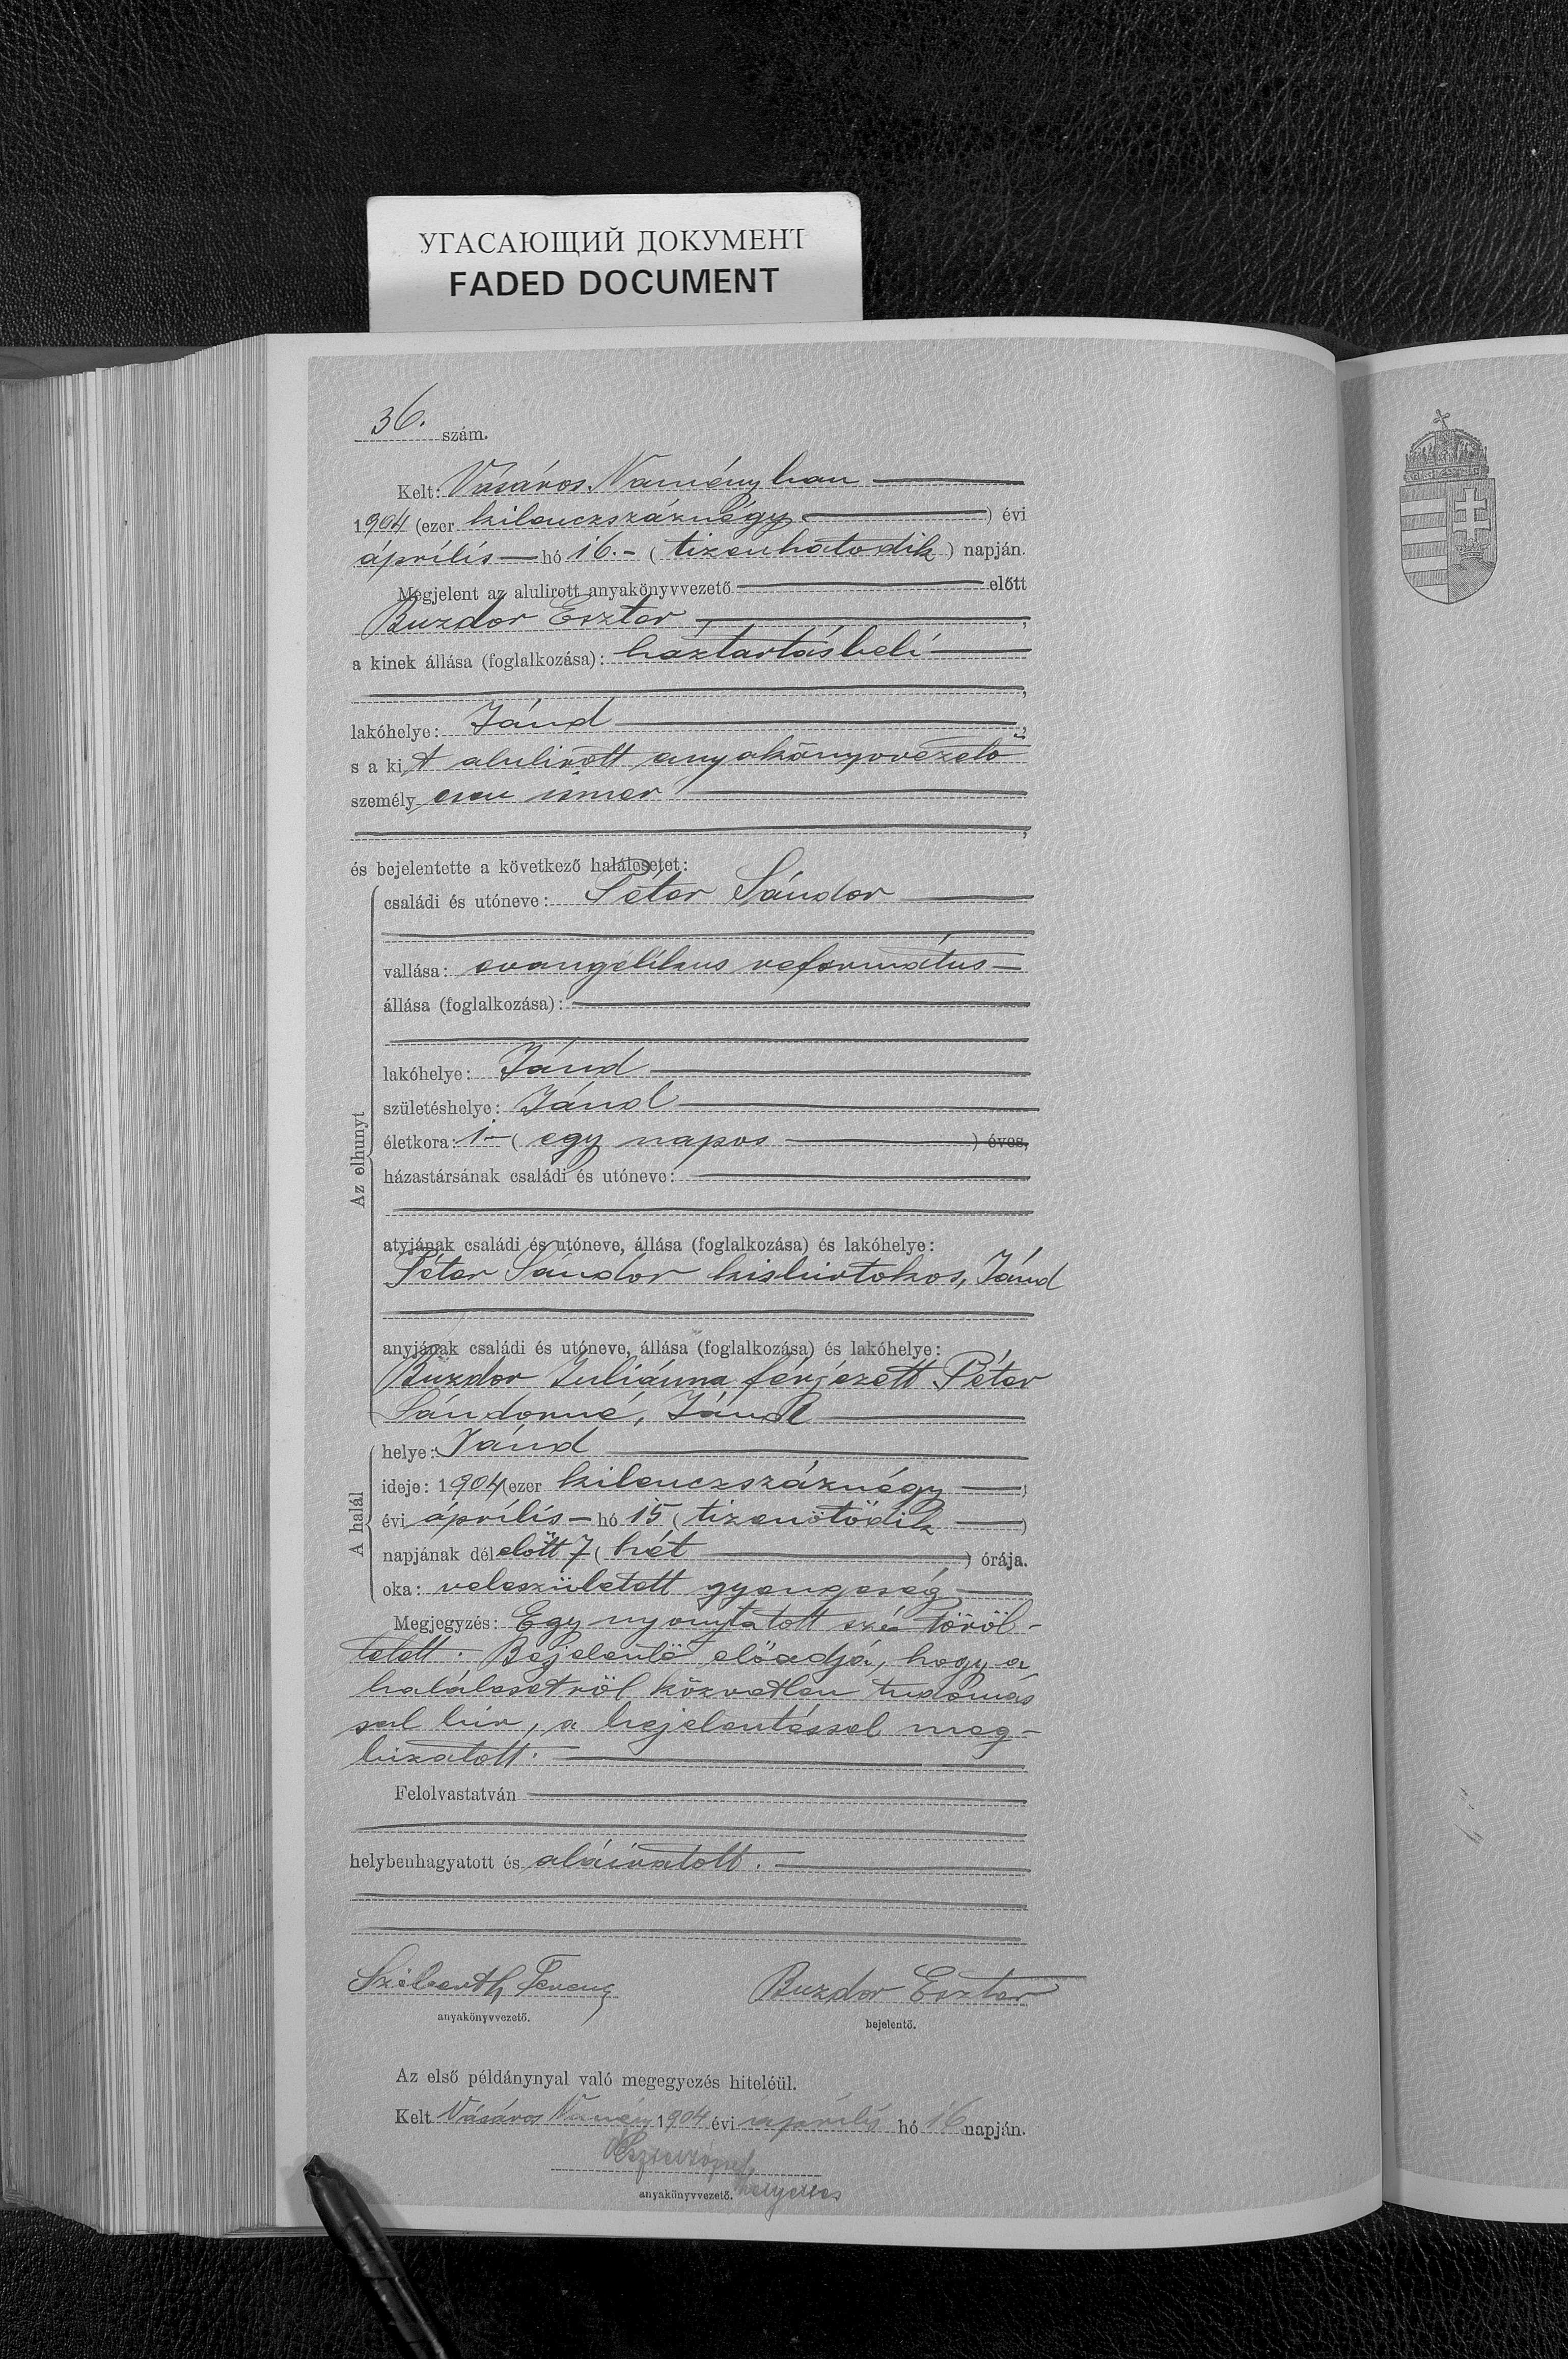 УГАСАЮЩИЙ ДОКУМЕНТ
FADED DOCUMENT
36. szám.
Kelt: Vásáros-Naményban
1904 (ezer kilenczszáznégy) évi
április hó 16.- (tizenhatodik) napján.
Megjelent az alulirott anyakönyvvezető előtt
Buzdor Eszter,
a kinek állása (foglalkozása): háztartásbeli
,
lakóhelye: Jánd,
s a kit alulirott anyakönyvvezető
személyesen ismer
,
és bejelentette a következő halálesetet:
Az elhunyt
családi és utóneve: Péter Sándor
vallása: evangélikus református
állása (foglalkozása):
lakóhelye: Jánd
születéshelye: Jánd
életkora: 1- (egy napos) éves,
házastársának családi és utóneve:
atyjának családi és utóneve, állása (foglalkozása) és lakóhelye:
Péter Sándor kisbirtokos, Jánd
anyjának családi és utóneve, állása (foglalkozása) és lakóhelye:
Buzdor Juliánna férjezett Péter
Sándorné, Jánd
A halál
helye: Jánd
ideje: 1904 (ezer kilenczszáznégy)
évi április hó 15 (tizenötödik)
napjának délelőtt 7 (hét) órája.
oka: veleszületett gyengeség
Megjegyzés: Egy nyomtatott szó töröl-
tetett. Bejelentő előadja, hogy a
halálesetről közvetlen tudomás
sal bir, a bejelentéssel meg-
bizatott.
Felolvastatván
helybenhagyatott és aláiratott.
Ferencz
anyakönyvvezető.
Buzdor Eszter
bejelentő.
Az első példánynyal való megegyezés hiteléül.
Kelt Vásáros Namény 1904 évi április hó 16 napján.
anyakönyvvezető. helyettes